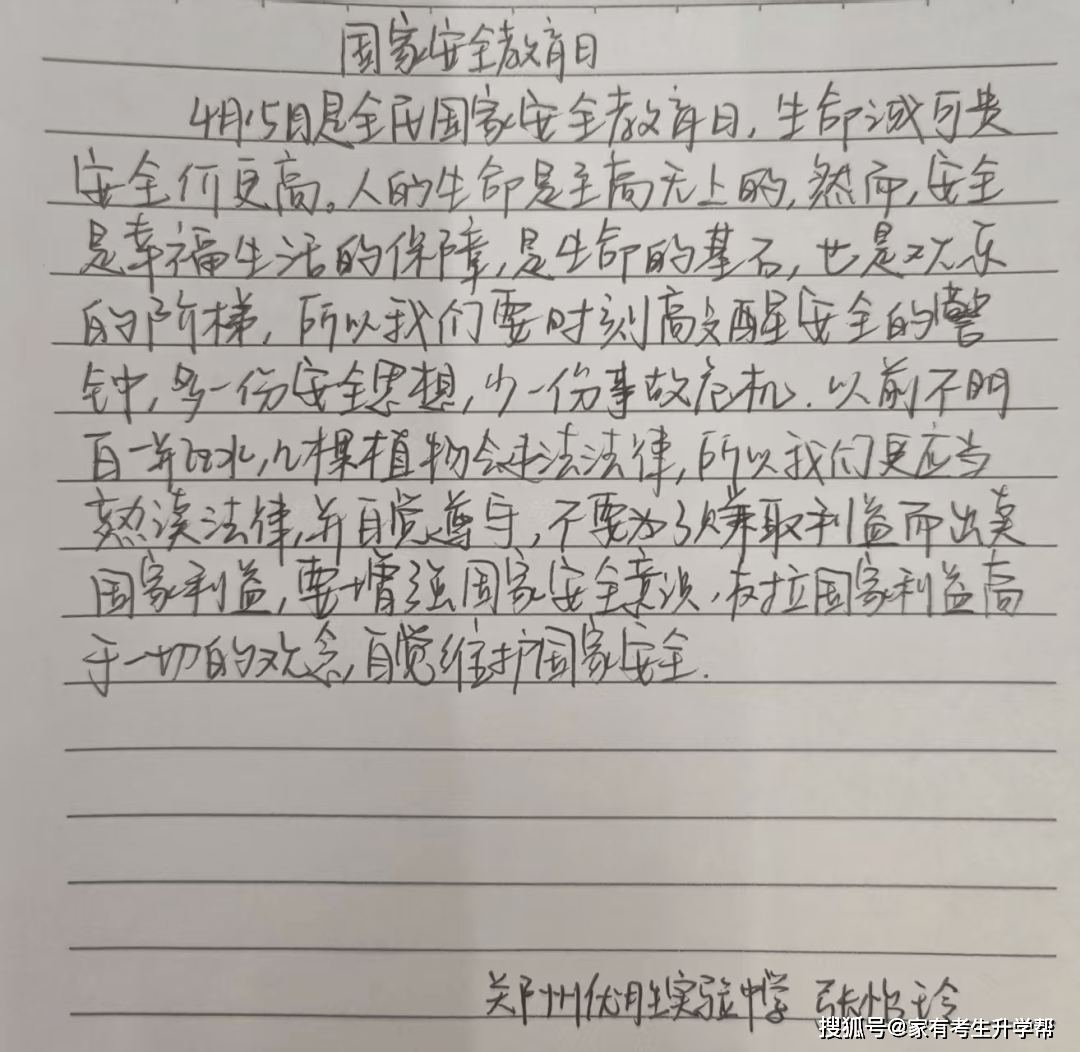 国家安全教育日
4月15日是全民国家安全教育日,生命诚可贵
安全价更高。人的生命是至高无上的,然而,安全
是幸福生活的保障,是生命的基石,也是欢乐
的阶梯,所以我们要时刻高文醒安全的警
钟,多一份安全思想,少一份事故危机.以前不明
白一并水,几棵植物会违法法律,所以我们更应当
熟读法律,并自觉尊守,不要为了赚取利益而出卖
国家利益,要增强国家安全意识,树拉国家利益高
于一切的观念,自觉维护国家安全.
郑州优胜实验中学 张怡玲
搜狐号@家有考生升学帮